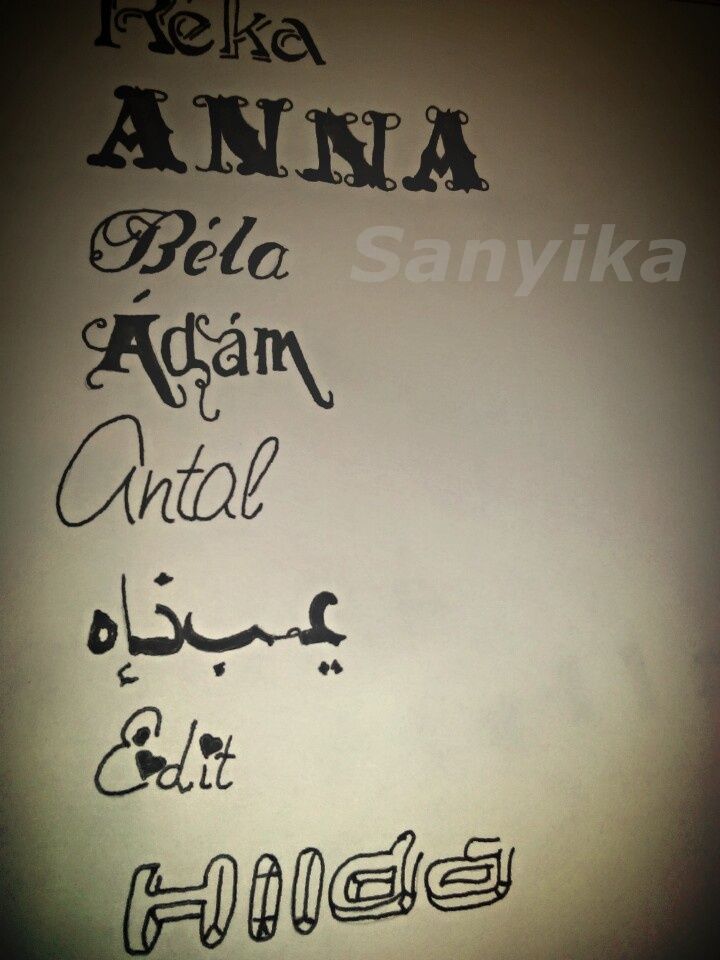 Réka
ANNA
Béla
Sanyika
Ádám
Antal
Edit
Hilda